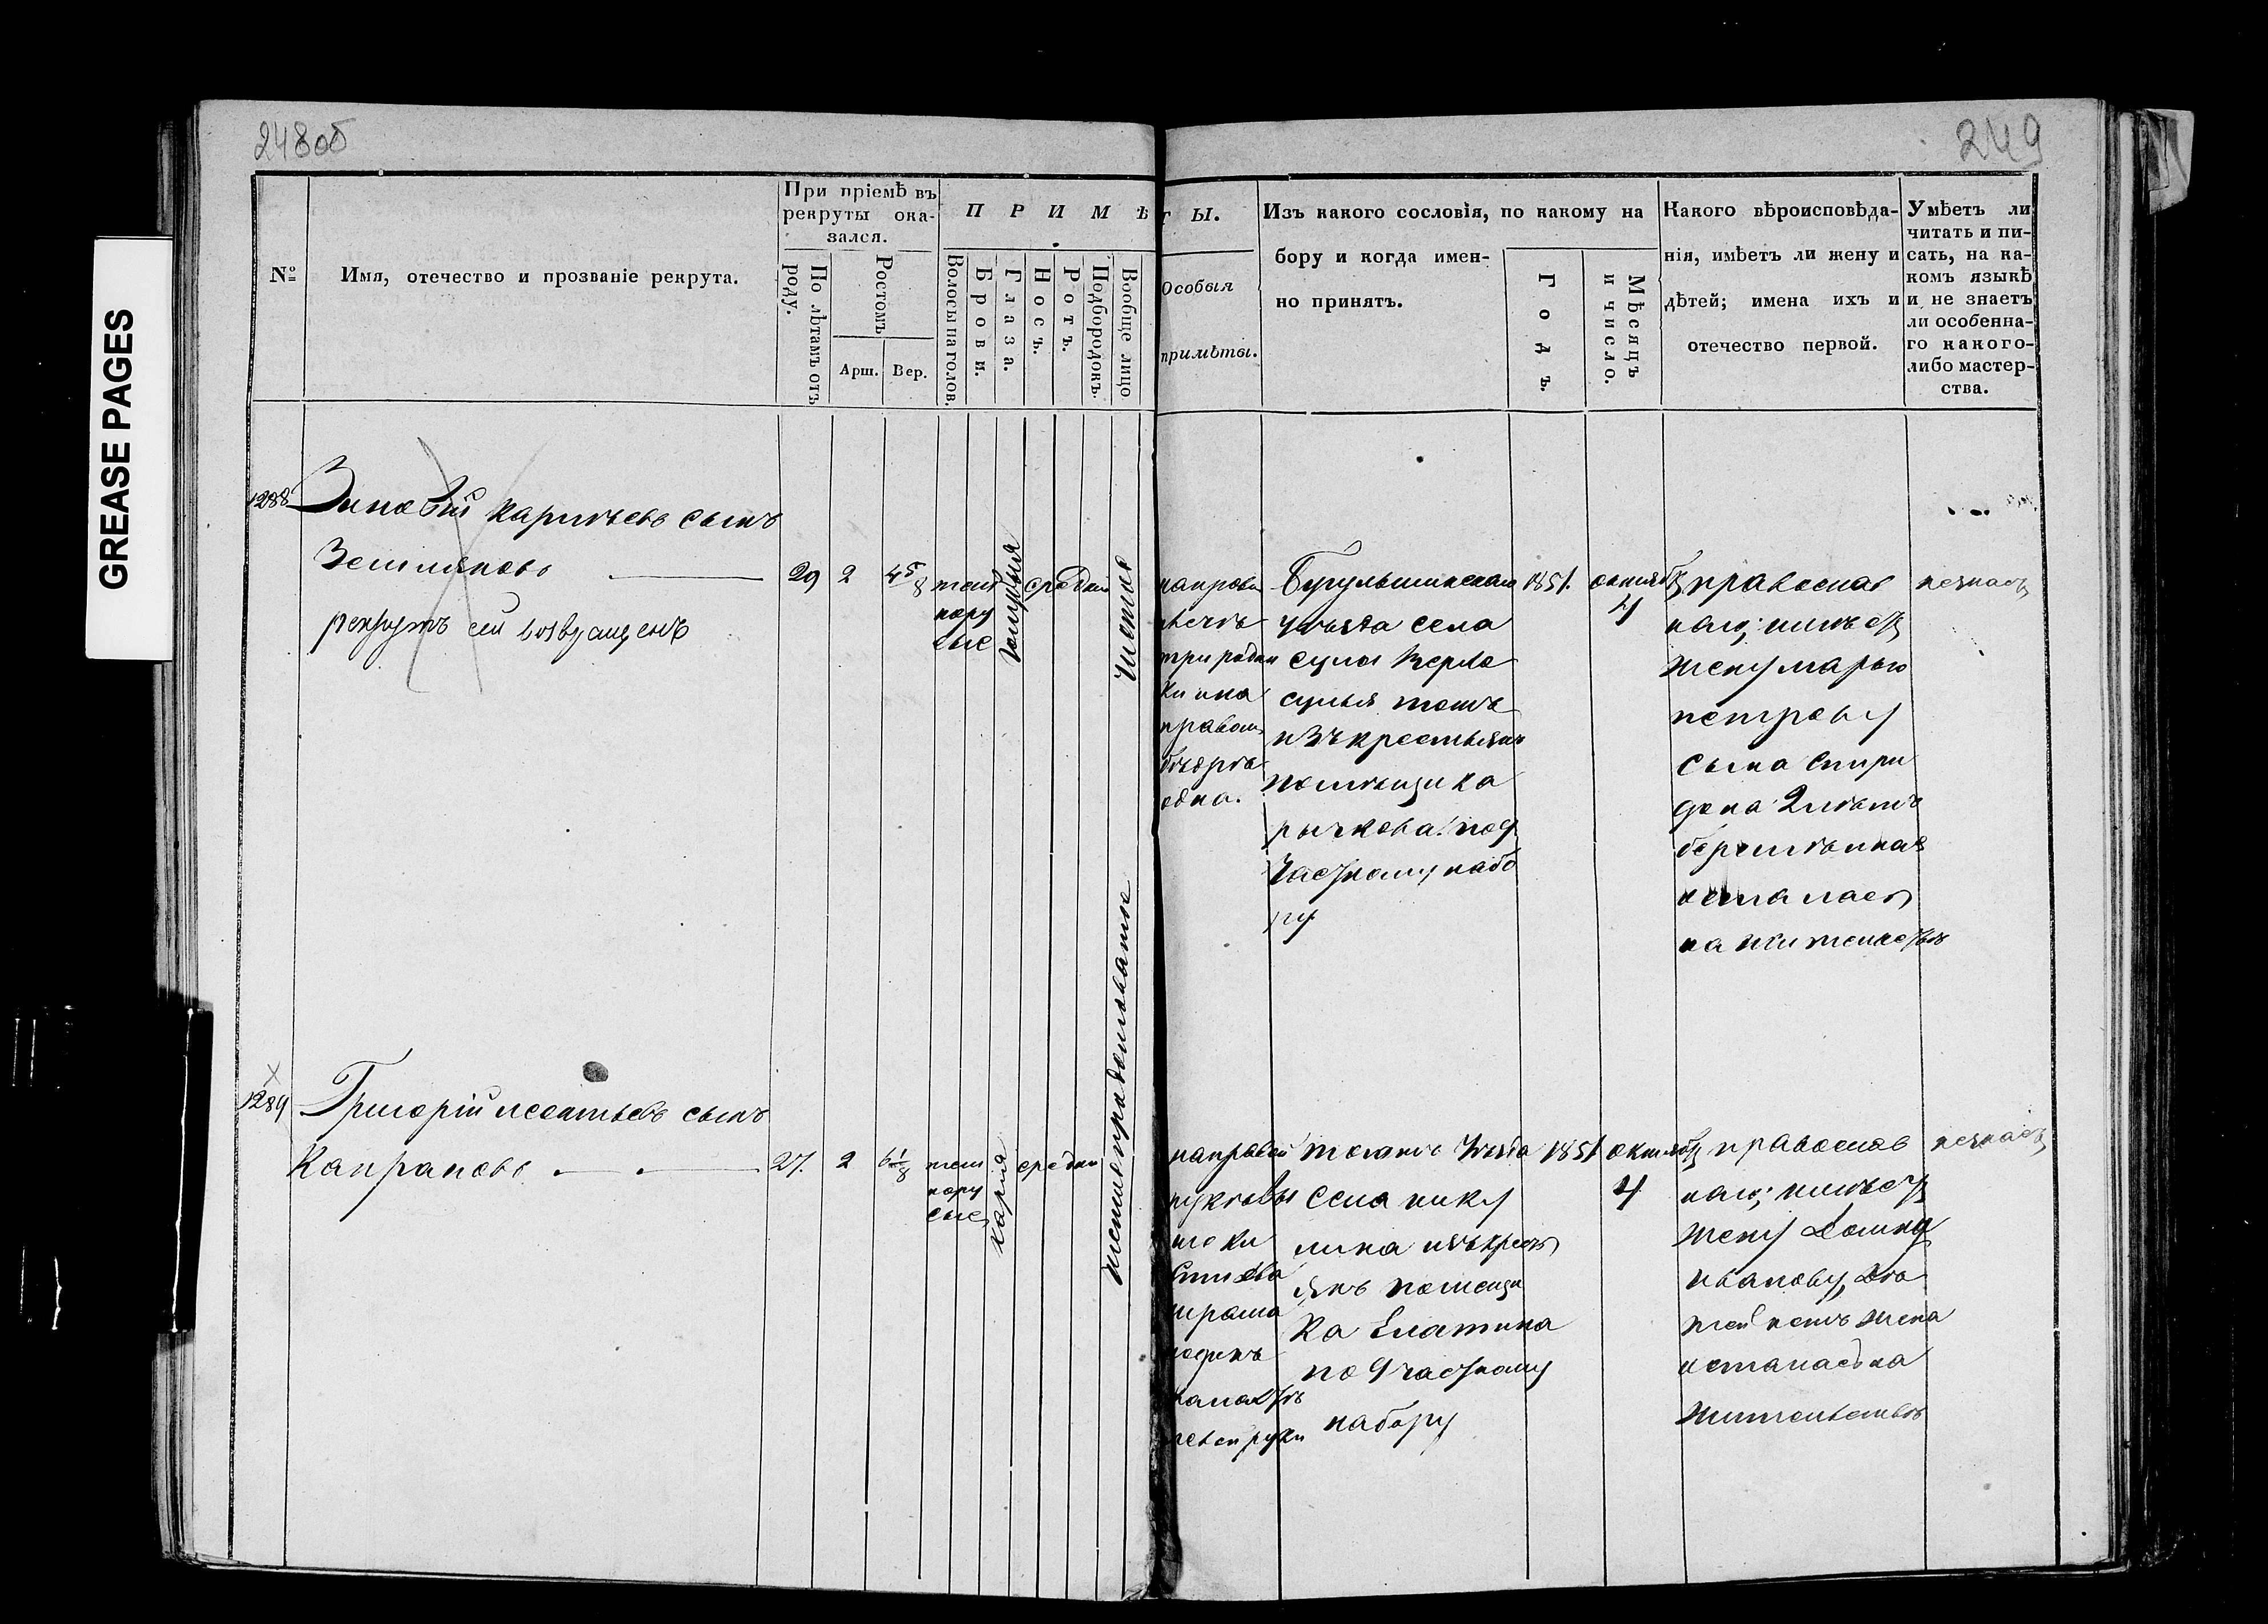 GREASE PAGES
248об
249
№
Имя, отечество и прозваніе рекрута.
При пріемѣ въ
рекруты ока-
зался.
По лѣтамъ отъ
роду.
Ростомъ
Арш.
Вер.
П Р И М Ѣ Т Ы.
Волосы на голов.
Брови.
Глаза.
Носъ.
Ротъ.
Подбородокъ.
Вообще лицо
Особыя
примѣты.
Изъ какого сословія, по какому на
бору и когда имен-
но принятъ.
Годъ.
Мѣсяцъ
и число.
Какого вѣроисповѣда-
нія, имѣетъ ли жену и
дѣтей; имена ихъ и
отечество первой.
Умѣетъ ли
читать и пи-
сать, на ка-
комъ языкѣ
и не знаетъ
ли особенна-
го какого-
либо мастер-
ства.
1288
Зиновій Карпѣевъ сынъ
Земляновъ
рекрутъ сей возвращенъ
29
2
4 5/8
тем
нору
сые
голубыя
средній
чисто
на правой
три родин
ки и на
правом
бедрѣ
одна.
Бугульминскаго
уѣзда села
сулы
тожъ
изъ крестьянъ
помѣщика
рычкова. по 9
частному набо
ру
1851.
октяб
4
православ
наго; имѣет
жену марью
петрову
сына Спири
дона 2 лѣтъ
беременная
осталась
на жительствѣ
незнаетъ
1289
Григорій леонтьевъ сынъ
Капрановъ
27.
2
6 1/8
тем
нору
сые
карія
средній
чисто продолговатое
на правой
щеки
шрама
один
левой руки
тогожъ уѣзда
села нику
лина изъ крест
янъ помещи
ка Елатина
по 9 частному
набору
1851
октяб
4
православ
наго; имѣет
жену Домну
иванову, дѣ
тей нетъ жена
осталась на
жительствѣ
незнаетъ